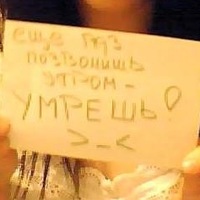 еще раз
позвонишь
утром-
УМРЕШЬ!
>_<